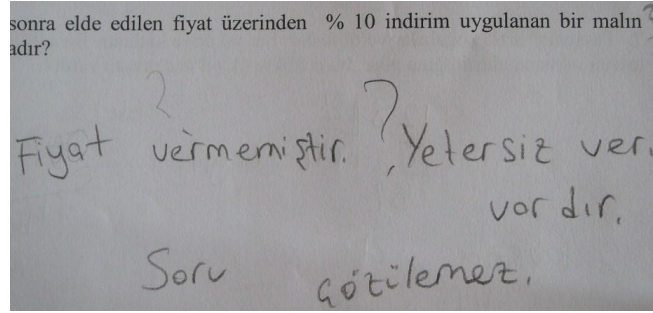 sonra elde edilen fiyat üzerinden % 10 indirim uygulanan bir malın
adır?
Fiyat vermemiştir. ? Yetersiz ver.
vardır.
Soru çözülemez.